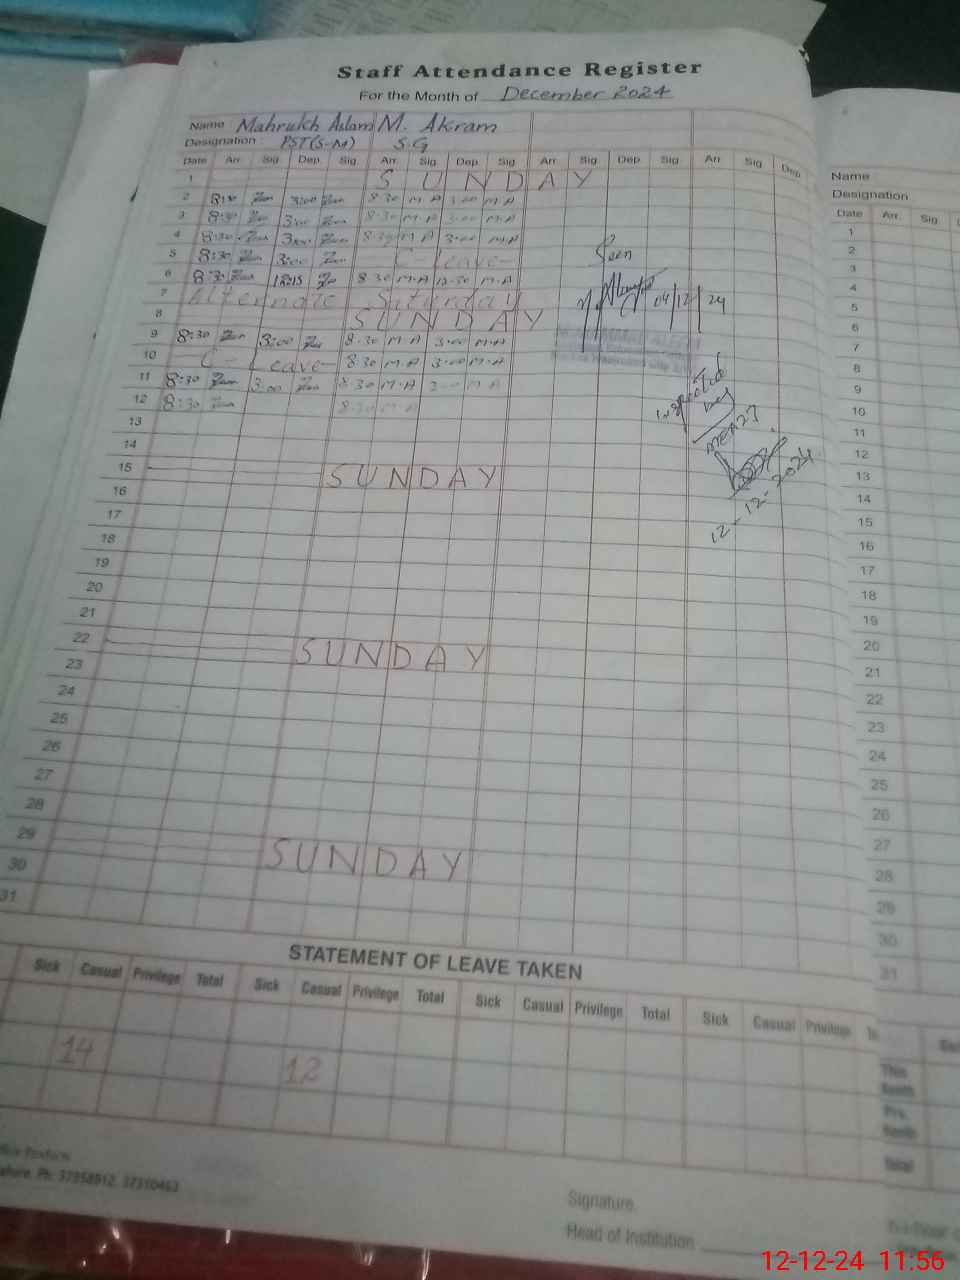 Staff Attendance Register
For the Month of December 2024
Name Mahrukh Aslam M. Akram
Designation : PST(S-M) S.G
Date Arr. Sig Dep. Sig. Arr. Sig Dep Sig Arr Sig. Dep. Sig Arr. Sig Dep
1 S U N D A Y
2 8:30 3:00 8.30 M.A 3.00 M.A
3 8:30 3:00 8.30 M.A 3.00 M.A
4 8:30 3:00 8.30 M A 3.00 M.A
5 8:30 3:00 C- Leave-
6 8:30 12:15 8.30 M.A 12.30 M.A
7 Alternate Saturday
8 S U N D A Y
9 8:30 3:00 8.30 M.A 3.00 M.A
10 C- Leave- 8.30 M.A 3.00 M.A
11 8:30 3:00 8.30 M.A 3.00 M A
12 8:30 8.30 M.A
13
14
15 SUNDAY
16
17
18
19
20
21
22 SUNDAY
23
24
25
26
27
28
29 SUNDAY
30
31
Seen
04/12/24
Inspected
by
MEA27
12-12-2024
STATEMENT OF LEAVE TAKEN
Sick Casual Privilege Total Sick Casual Privilege Total Sick Casual Privilege Total Sick Casual Privilege
14 12
Ph: 37358912, 37310463
Signature.
Head of Institution
Name
Designation
Date Arr. Sig.
1
2
3
4
5
6
7
8
9
10
11
12
13
14
15
16
17
18
19
20
21
22
23
24
25
26
27
28
29
30
31
This
Total
12-12-24 11:56